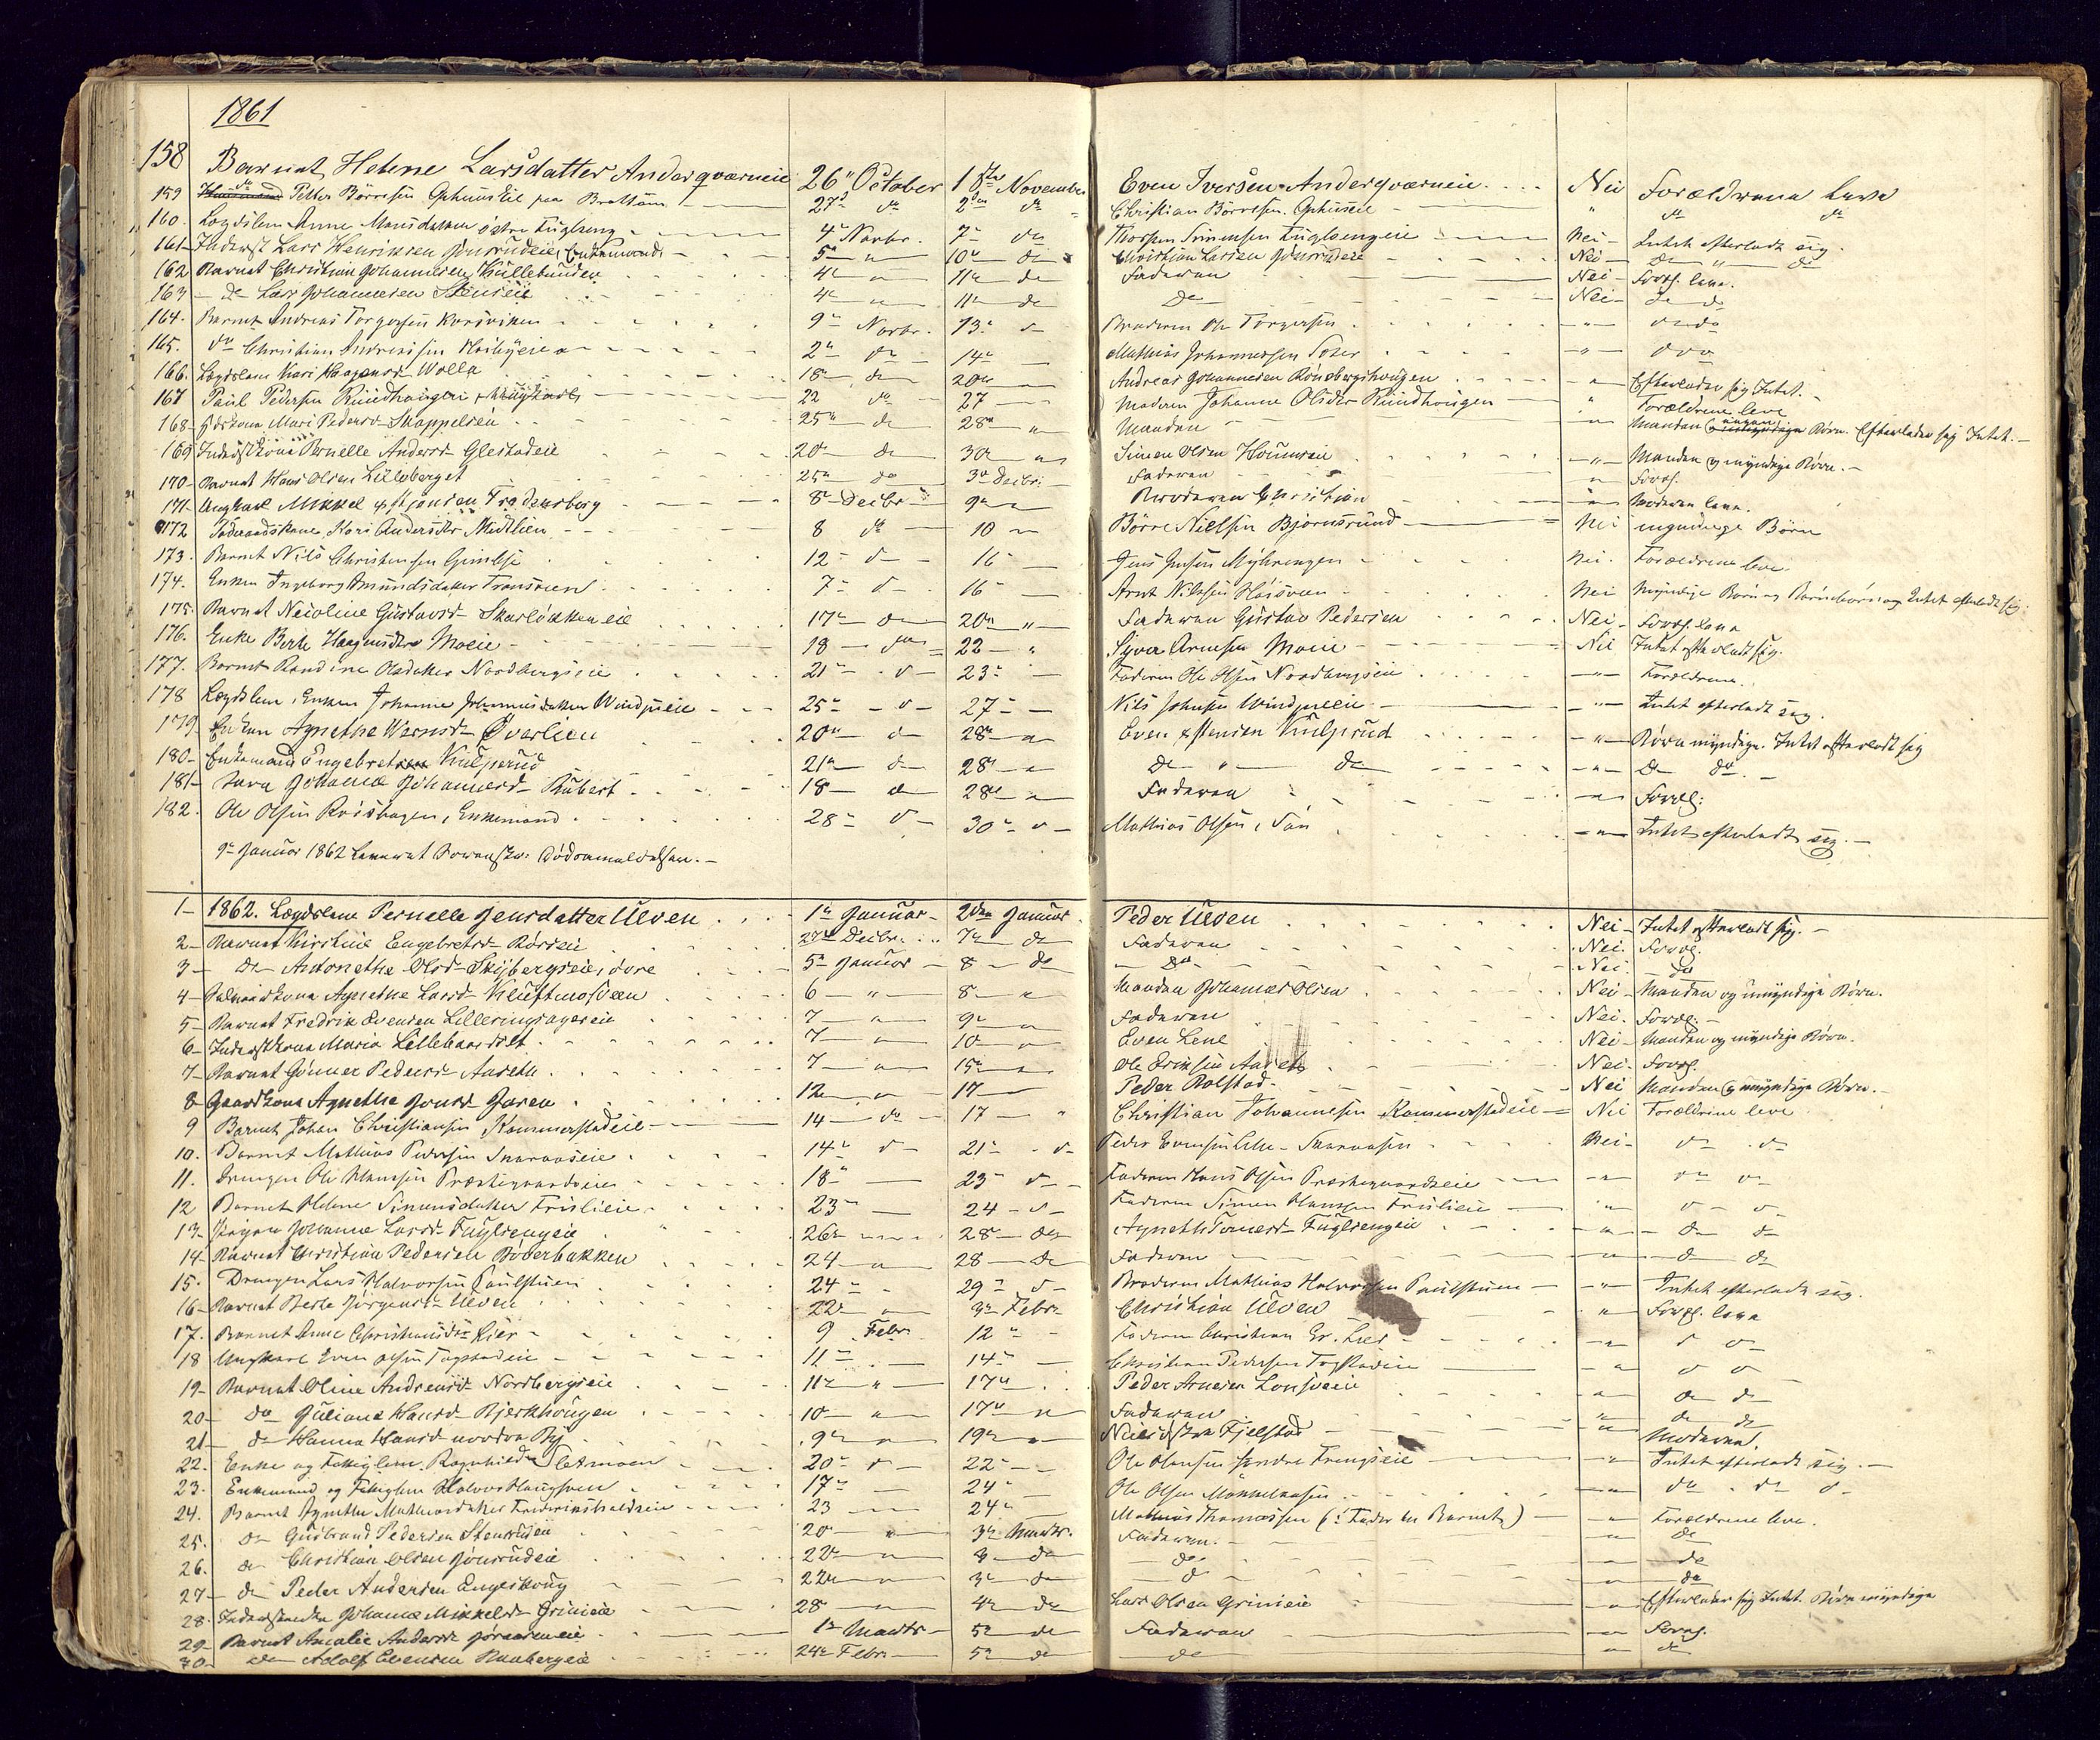 1861
158 Barnet Helene Larsdatter Anderqværneie 26" October 1ste November Even Iversen Anderqværneie Nei Forældrene leve
159 Petter Börresen Ophuuseie paa Brattum 27" do 2den do Christian Börresen Ophuuseie " do do
160. Lægdslem Anne Monsdatter östre Fuglseng 4" Novbr. 7" do Thosten Simensen Fuglsengeie Nei - Intet efterladt sig.
161- Inderst Lars Henriksen Jönsrudeie, Enkemand 5" " 10" do Christian Larsen Jönsrudeie Nei - do " do
162 Barnet Christian Johannesen Küllebunden 4" " 11" do Faderen Nei - Foræ. leve.
163 - do Lars Johannesen Stenseie 4" " 11" do Do Nei - do do
164. Barnet Andreas Torgersen Korsviken 9" Novbr. 13" d- Broderen Ole Torgersen " do do
165. do Christian Andreassen Hoibyeie 2" do 14" Mathias Johannessen Soter " do do
166. Lægdslem Kari Haagensd Wolla 18" do 20" " Andreas Johannesen Rönebergshougen " Efterlader sig Intet.
167 Paul Pedersen Rundhougen, Ungkarl 22 do 27 Moderen Johanne Olsdtr Rundhougen " Forældrene leve
168- Mari Pedersd Skappelseie 25" do 28" " Manden " Manden og ungen Börn. Efterlader sig Intet.
169 Inderstkone Pernelle Andersd- Glestadeie 20" do 30" " Simen Olsen Hournseie " Manden og myndige Börn.
170- Barnet Hans Olsen Lilleberget 25" do 3" Decbr: Faderen " Foræ.
171- Ungkarl Mikkel Fredensborg 8" Decbr 9" " Broderen Christian " Moderen leve.
172 Kari Andersdtr Midtlien 8 do 10 " Börre Nielsen Bjornsrud Nei myndige Börn
173. Barnet Nils Christensen Gimlse 12 - d- 16 Jens Jensen Myhrengen Nei. Forældrene leve.
174. Enken Ingeborg Amundsdatter Transveen 7" d- 16 Arnt Nilsen Hoisveen Nei Myndige Börn og Börnebörn og Intet efterladt sig.
175. Barnet Nicoline Gustavsd- Skarlökkeneie 17" do 20" " Faderen Gustav Pedersen Nei - Foræ. leve
176. Enke Berte Haagensdtr Moeie 18 - do 22 - " Syver Arnesen Moeie Nei Intet efterladt sig.
177. Barnet Randine Olsdatter Nordbergseie 21" - d- 23" Faderen Ole Olsen Nordbergseie " Forældrene.
178 Lægdslem, Enken Johanne Johannesdatter Windjueie 25" - d- 27" Nils Johnsen Windjueie " Intet efterladt sig.
179 Enken Agnethe Wernersd- Överlien 20" do 28" " Even Estensen Kulsrud " Börn myndige. Intet efterladt sig
180- Enkemand Engebret Kulperud 21" do 28" " Do " do " Do do.
181- Johanne Johannesd- Rubert 18 do 28" " Faderen " Foræ:
182. Ole Olsen Roishagen, Enkemand 28" d- 30" d- Mathias Olsen, Sön " Intet efterladt sig.
9" Januar 1862 leveret Dödsanmeldelsen.
1- 1862. Lægdslem Pernelle Jensdatter Ulven 1" Januar 2den Januar Peder Ulven Nei - Intet efterladt sig.
2- Barnet Kirstine Engebretsd- Rörseie 27" Decbr. 7" do Faderen Nei. Foræ.
3- do Antonethe Olsd- Skybergseie, övre 5" Januar 8 - do do Nei. do
4- Agnethe Larsd- Kluftmosveen 6 " 8 " Manden Johannes Olsen Nei - Manden og umyndige Börn.
5- Barnet Fredrik Evensen Lilleringsageseie 7 " 9" " Faderen Nei. Foræ:
6- Inderstkone Maria Lillebaardset 7 " 10 " Even Lene Nei - Manden og myndige Börn.
7- Barnet Gunner Pedersd- Aaseth 7 " 15" " Ole Eriksen Aaseth Nei. Foræ.
8- Gaardkone Agnethe Jensd- Joren 12 " 17 Peder Rolstad Nei Manden og umyndige Börn.
9 Barnet Johan Christiansen Kammerstadeie 14 do 17 " Christian Johannesen Kammerstadeie Nei Forældrene leve
10. Barnet Mathias Pedersen Skaraaseie 14" d- 21" d- Peder Evensen Lille-Skaraasen Nei- do do
11. Drengen Ole Hansen Præstegaardseie 18" 23" d- Faderen Hans Olsen Præstegaardseie " do do
12 Barnet Helene Simensdatter Frislieie 23" 24 - d- Faderen Simen Hansen Frislieie " d- d-
13- Pigen Johanne Larsd- Fuglsengeie 26" 28" do Agnethe Tomesd- Fuglsengeie " do do
14- Barnet Christian Pedersen Boverbakken 24 " 28 do Faderen " do do
15. Drengen Lars Halvorsen Paulstuen 24" 29" d- Broderen Mathias Halvorsen Paulstuen " Intet efterladt sig.
16- Barnet Berte Jörgensd- Ulven 22" " 3" Febr. Christian Ulven " Foræ. leve
17. Barnet Anne Christiansdtr Lier 9 Febr. 12" Faderen Christian Er. Lier " d d-
18 Ungkarl Even Olsen Togstadeie 11" 14" Christian Pedersen Togstadeie " d d
19- Barnet Oline Andreasd- Nordbergseie 11" " 17" Peder Arnesen Lonsveie " do do
20- do Juliane Hansd- Bjerkhougen 10 " 17" " Faderen " do do
21- do Hanna Hansd- nordre By 9" " 19" " Fjelstad " Moderen.
22. Enke og Fattiglem Ragnhild Sletmoen 20" d- 22" Ole Hansen söndre Frengseie " Intet efterladt sig.
23. Enkemand og Fattiglem Halvor Haugsveen 17" 24" Ole Olsen " do do d-
24. Barnet Agnethe Mathiasdatter Fredrikshaldseie 23 24" Mathias Thomassen (: Fader til Barnet) " Forældrene leve.
25. do Gulbrand Pedersen Stensrudeie 20 " 3" Marts. Faderen. " do
26. do Christian Olsen Jönsrudeie 22" " 3 do do " do
27- do Peder Andersen Engeskoug 22" " 3" do do " do
28. Johanne Mikkelsd- Grinieie 28 " 4" do Lars Olsen Grinieie " Efterlader sig Intet. Börn myndige
29- Barnet Amalie Andersd- 1" Marts 5" do Faderen " Foræ.
30- do Adolf Evensen 24" Febr. 5" do do " do